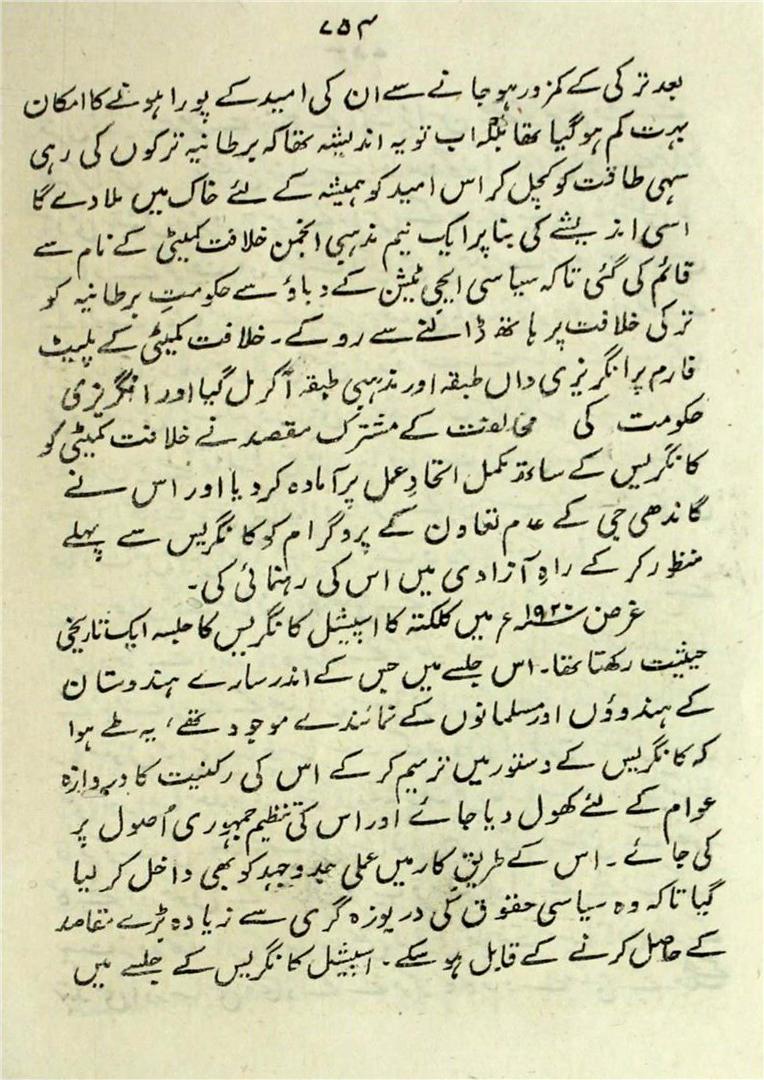 ۷۵۴
بعد ترکی کے کمزور ہو جانے سے ان کی امید کے پورا ہونے کا امکان
بہت کم ہو گیا تھا بلکہ اب تو یہ اندیشہ تھا کہ برطانیہ ترکوں کی رہی
سہی طاقت کو کچل کر اس امید کو ہمیشہ کے لئے خاک میں ملا دے گا
اسی اندیشے کی بنا پر ایک نیم مذہبی انجمن خلافت کمیٹی کے نام سے
قائم کی گئی تاکہ سیاسی ایجی ٹیشن کے دباؤ سے حکومتِ برطانیہ کو
ترکی خلافت پر ہاتھ ڈالنے سے روکے۔ خلافت کمیٹی کے پلیٹ
فارم پر انگریزی داں طبقہ اور مذہبی طبقہ آکر مل گیا اور انگریزی
حکومت کی مخالفت کے مشترک مقصد نے خلافت کمیٹی کو
کانگریس کے ساتھ مکمل اتحادِ عمل پر آمادہ کر دیا اور اس نے
گاندھی جی کے عدم تعاون کے پروگرام کو کانگریس سے پہلے
منظور کر کے راہِ آزادی میں اس کی رہنمائی کی۔
غرض ۱۹۲۰ء میں کلکتہ کا اسپیشل کانگریس کا جلسہ ایک تاریخی
حیثیت رکھتا تھا۔ اس جلسے میں جس کے اندر سارے ہندوستان
کے ہندوؤں اور مسلمانوں کے نمائندے موجود تھے، یہ طے ہوا
کہ کانگریس کے دستور میں ترمیم کر کے اس کی رکنیت کا دروازہ
عوام کے لئے کھول دیا جائے اور اس کی تنظیم جمہوری اُصول پر
کی جائے۔ اس کے طریقِ کار میں عملی جدوجہد کو بھی داخل کر لیا
گیا تاکہ وہ سیاسی حقوق کی دریوزہ گری سے زیادہ بڑے مقاصد
کے حاصل کرنے کے قابل ہو سکے۔ اسپیشل کانگریس کے جلسے میں